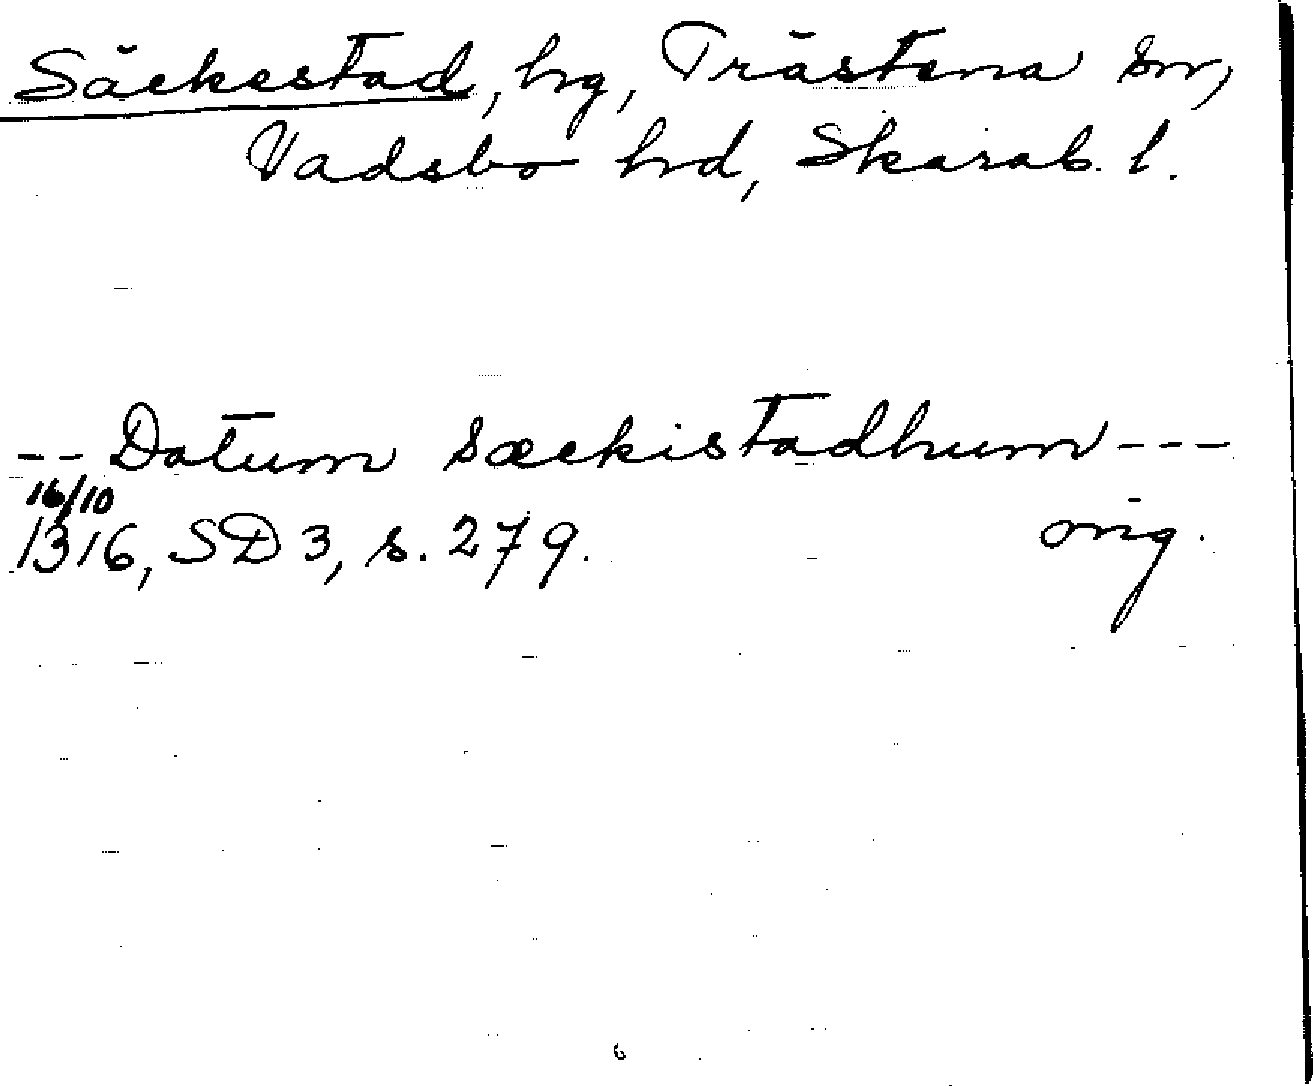 Säckestad, hg, Trästena sn,
Vadsbo hd, Skarab. l.
-- Datum sæckistadhum ---
16/10
1316, SD 3, s. 279. orig.
6